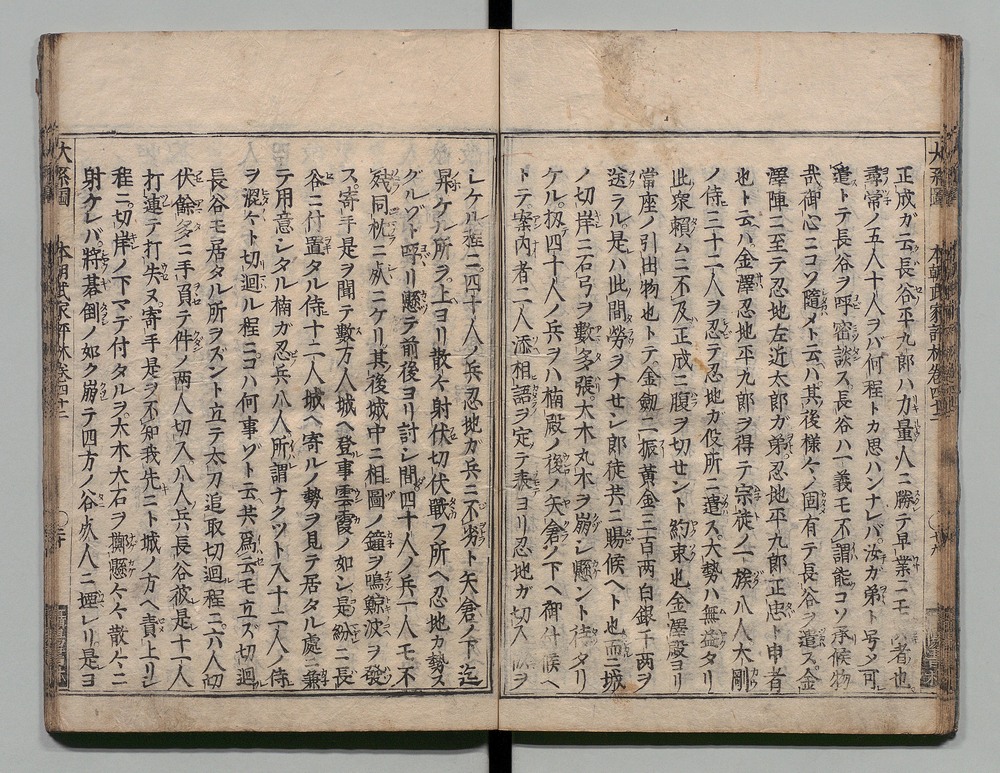 正成ガ云長谷平九郎ハ力量人ニ勝テ早業ニ 者也
尋常ノ五人十人ヲバ何程トカ思ハンナレバ汝ガ弟ト号メ可
遣トテ長谷ヲ呼密談ス長谷ハ一義モ不謂能コソ承候物
哉御心ニコソ隨メト云ハ其後様々ノ固有テ長谷ヲ遣ス金
澤陣ニ至テ忍地左近太郎ガ弟忍地平九郎正忠ト申者
也ト云ハ金澤忍地平九郎ヲ得テ宗徒ノ一族八人大剛
ノ侍三十二人ヲ忍テ忍地カ役所ニ遣ス大勢ハ無益タリ
此衆賴ムニ不及正成ニ腹ヲ切セント約束也金澤殿ヨリ
當座ノ引出物也トテ金劔二振黃金三百兩白銀千两ヲ
送ラル是ハ此間勞ヲナセシ郎徒共ニ賜候ヘト也而ニ城
ノ切岸ニ石弓ヲ數多張大木丸木ヲ崩シ懸ント待タリ
ケル扨四十人ノ兵ヲハ楠殿ノ後ノ矢倉ノ下ヘ御付候ヘ
トテ案内者二人添相語ヲ定テ表ヨリ忍地ガ切入 ヲ
シケル程ニ四十人ノ兵忍地ガ兵ニ不劣ト矢倉ノ下迄
昇ケル所ヲ上ヨリ散々射伏切伏戰フ所ヘ忍地カ勢ス
グルゾト呼リ懸テ前後ヨリ討シ間四十人ノ兵一人モ不
残同枕ニ成ニケリ其後城中ニ相圖ノ鐘ヲ鳴鯨波ヲ發
ス寄手是ヲ聞テ數万人城ヘ登事雲霞ノ如シ是紛ニ長
谷ニ付置タル侍十二人城ヘ寄ルノ勢ヲ見テ居タル處ニ兼
テ用意シタル楠ガ忍兵八人所謂ナクツト入十二人ノ侍
ヲ澱々ト切廻ル程ニコハ何事ゾト云共爲云モ立ズ切廻
長谷モ居タル所ヲズント立テ太刀追取切廻程ニ六人切
伏餘多ニ手負テ件ノ两人切入八人兵長谷彼是十一人
打連テ打失ヌ寄手是ヲ不知我先ニト城ノ方ヘ責上リシ
程ニ切岸ノ下マデ付タルヲ大木大石ヲ擲懸々々散々ニ
射ケレバ將碁倒ノ如ク崩テ四方ノ谷成人ニ埋レリ是ヨ